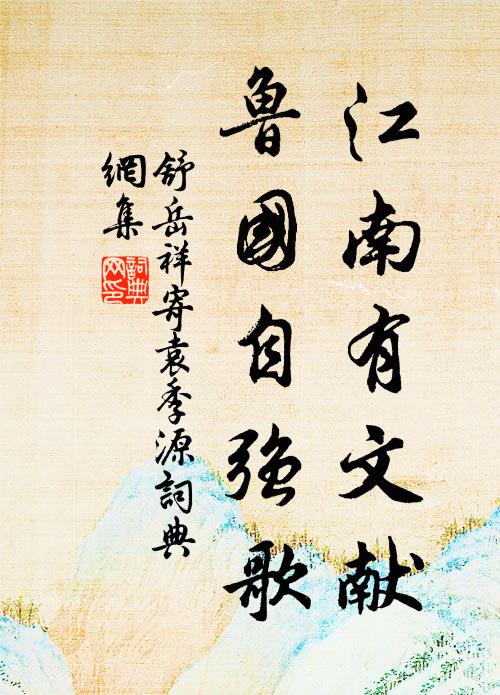 江南有文献
魯國自強歌
舒岳祥寄袁季源詞典
網集
詞典
网印